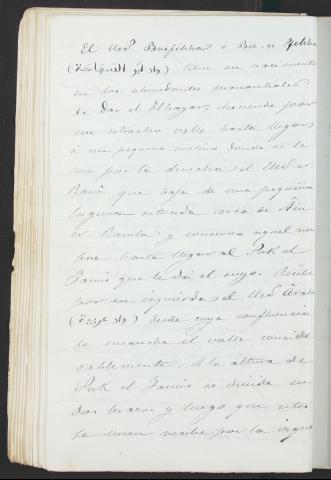 El Ued Busfikha ó Bu-es Sfikha
(واد ابو السفيخة) tiene su nacimiento
en los abundantes manantiales
de Dar el Hhayar, desciende por
un estrecho valle hasta llegar
á un pequeño molino donde se le
une por la derecha el Ued er
Raml que baja de una pequeña
laguna situada cerca de Ain
er Ramla y conserva aquel nom
bre hasta llegar al Suk el
Jamis que le da el suyo. Recibe
por su izquierda el Ued
desde cuya confluencia
se ensancha el valle conside
rablemente. A la altura de
Suk el Jamis se divide en
dos brazos y luego que estos
se unen recibe por la izquier